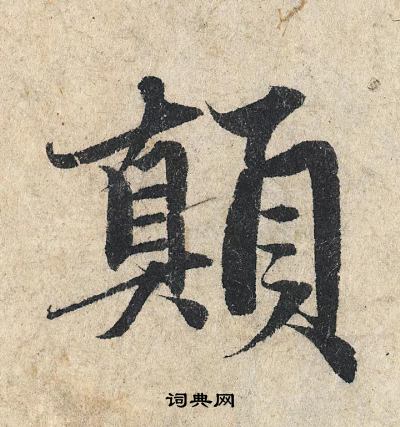 顛
词典网